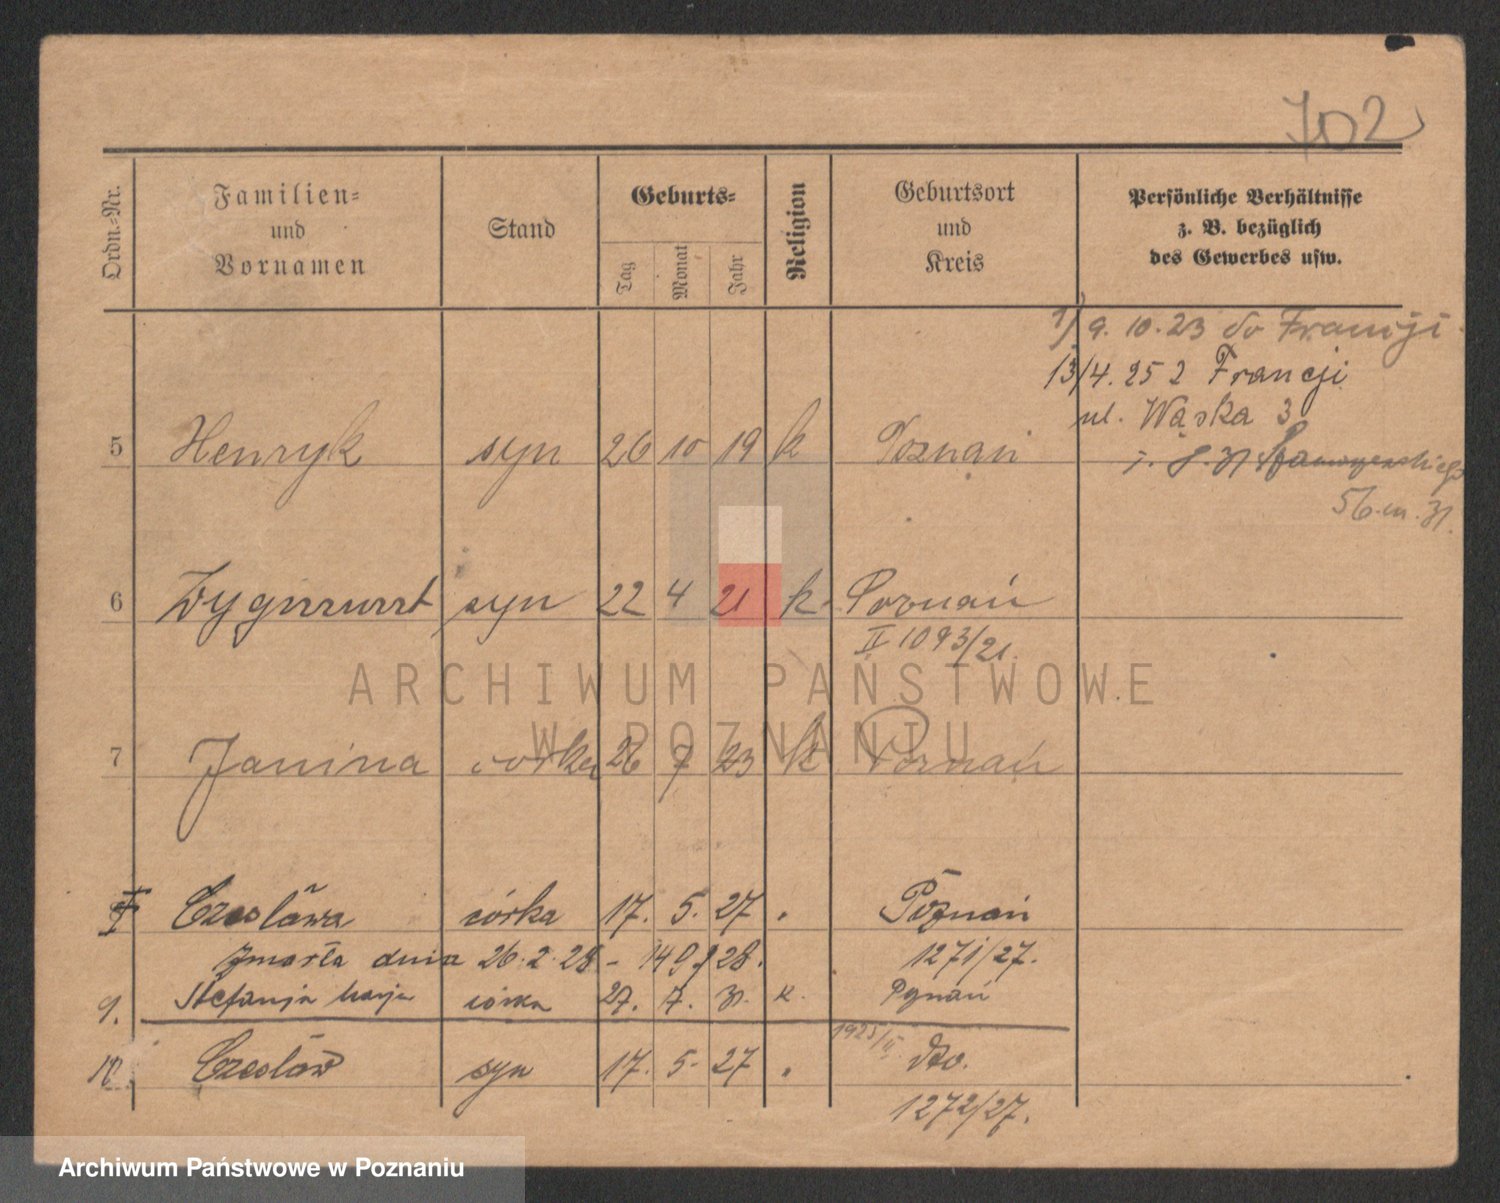 702
Ordn.=Nr.
Familien=
und
Vornamen
Stand
Geburts=
Tag
Monat
Jahr
Religion
Geburtsort
und
Kreis
Persönliche Verhältnisse
z. B. bezüglich
des Gewerbes usw.
1/ 9. 10. 23 do Francji
13/4. 25 z Francji
ul. Wąska 3
5 Henryk syn 26 10 19 k Poznań
56. m. 31.
6 Zygmunt syn 22 4 21 k. Poznań
II 1093/21.
ARCHIWUM PAŃSTWOWE
W POZNANIU
7 Janina córka 26 7 23 k Poznań
Czesława córka 17. 5. 27 Poznań
Zmarła dnia 26. 2. 28 - 149/28. 1271/27.
9. Stefanja Marja córka 27. 7. 31. k. Poznań
10. Czesław syn 17. 5. 27 dto.
1272/27.
Archiwum Państwowe w Poznaniu